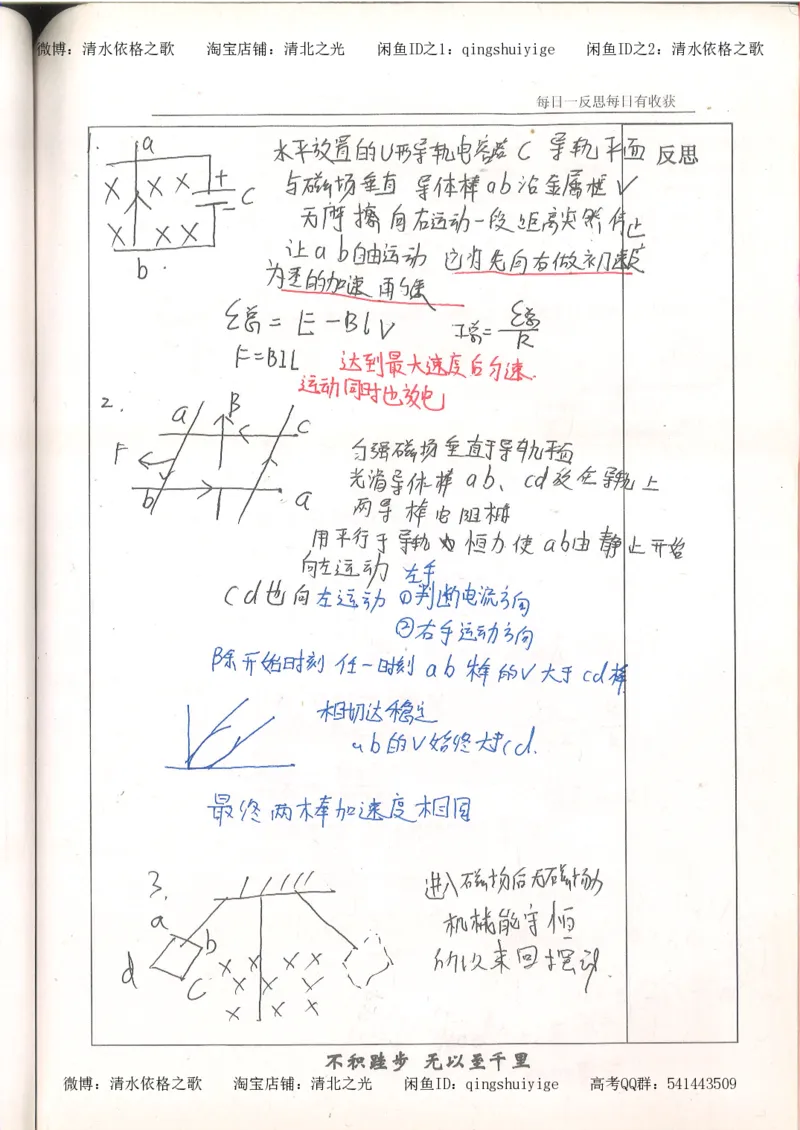 微博：清水依格之歌 淘宝店铺：清北之光 闲鱼ID之1：qingshuiyige 闲鱼ID之2：清水依格之歌
每日一反思每日有收获
反思
1.
a
C
b
水平放置的U形导轨电容器C 导轨平面
与磁场垂直 导体棒ab沿金属框V
无摩擦向右运动一段距离突然停止
让ab自由运动 它将先向右做初速度
为零的加速 再匀速
ε总=E-BLV I总=ε总/R
F=BIL 达到最大速度后匀速.
运动同时也放电
2.
a B c
F
b a
匀强磁场垂直于导轨平面
光滑导体棒ab、cd放在导轨上
两导棒电阻相同
用平行于导轨的恒力使ab由静止开始
向左运动 左手
cd也向左运动 ①判断电流方向
②右手运动方向
除开始时刻 任一时刻ab棒的V大于cd棒
相切达稳定
ab的V始终大于cd.
最终两棒加速度相同
3.
a b
d c
进入磁场后无磁场力
机械能守恒
所以来回摆动.
不积跬步 无以至千里
微博：清水依格之歌 淘宝店铺：清北之光 闲鱼ID：qingshuiyige 高考QQ群：541443509